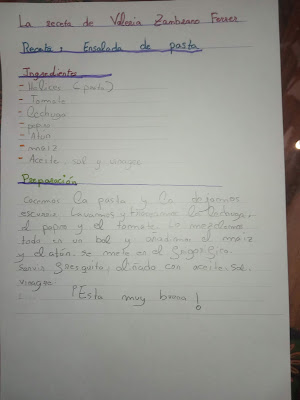 La receta de Valeria Zambrano Ferrer
Receta: Ensalada de pasta
Ingredientes
- Hélices (pasta)
- Tomate
- lechuga
- pepino
- Atún
- maíz
- Aceite, sal y vinagre
Preparación
Cocemos la pasta y la dejamos
escurrir. Lavamos y troceamos la lechuga,
el pepino y el tomate. Lo mezclamos
todo en un bol y añadimos el maíz
y el atún. Se mete en el frigorífico.
Servir fresquito, aliñado con aceite. Sal.
vinagre.
¡Esta muy buena!